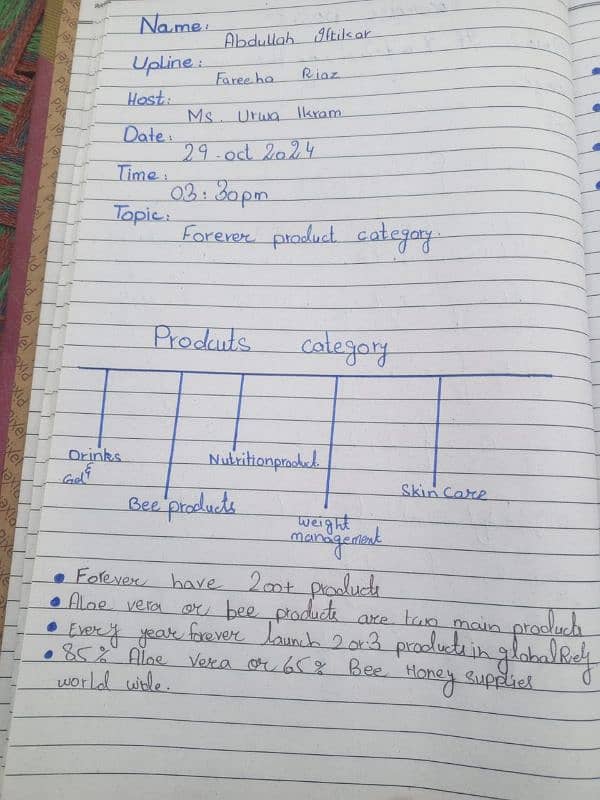 Name:
Abdullah Iftikar
Upline:
Fareeha Riaz
Host:
Ms. Urwa Ikram
Date:
29-oct 2024
Time:
03:30pm
Topic:
Forever product category.
Prodcuts category
Drinks
& Gel
Bee products
Nutrition product.
Weight
management
Skin Care
• Forever have 200+ products
• Aloe vera or bee products are two main products
• Every year forever launch 2 or 3 products in global
• 85% Aloe Vera or 65% Bee Honey supplies
world wide.